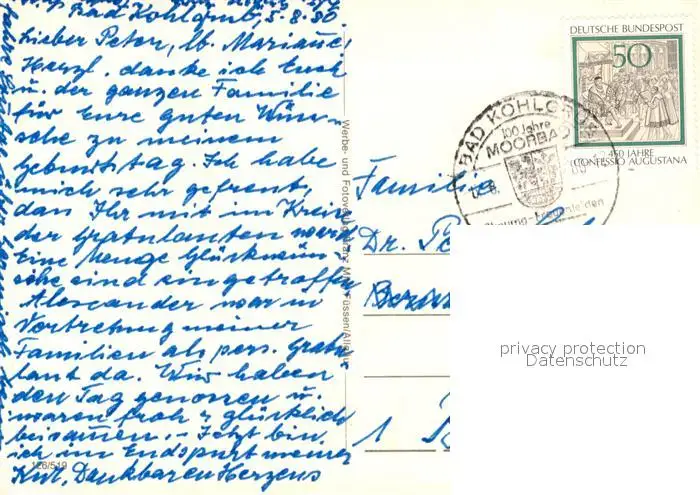 Bad Kohlgrub, 5.8.80
Lieber Peter, lb. Marianne,
Herzl. danke ich Euch
u. der ganzen Familie
für Eure guten Wün-
sche zu meinem
Geburtstag. Ich habe
mich sehr gefreut,
dan Ihr mit im Kreis
der Gratulanten ward
Eine Menge Glückwün-
sche sind eingetroffen
Alexander war in
Vertretung meiner
Familien als pers. Gratu
lant da. Wir haben
den Tag genossen u.
waren froh & glücklich
beisammen. - Jetzt bin
ich im Endspurt meiner
Kur, Dankbaren Herzens
126/519
Werbe- und Fotoverlag
Füssen/Allgäu
DEUTSCHE BUNDESPOST
50
450 JAHRE
CONFESSIO AUGUSTANA
BAD KOHLGRUB
100 Jahre
MOORBAD
Familie
Dr.
1
privacy protection
Datenschutz